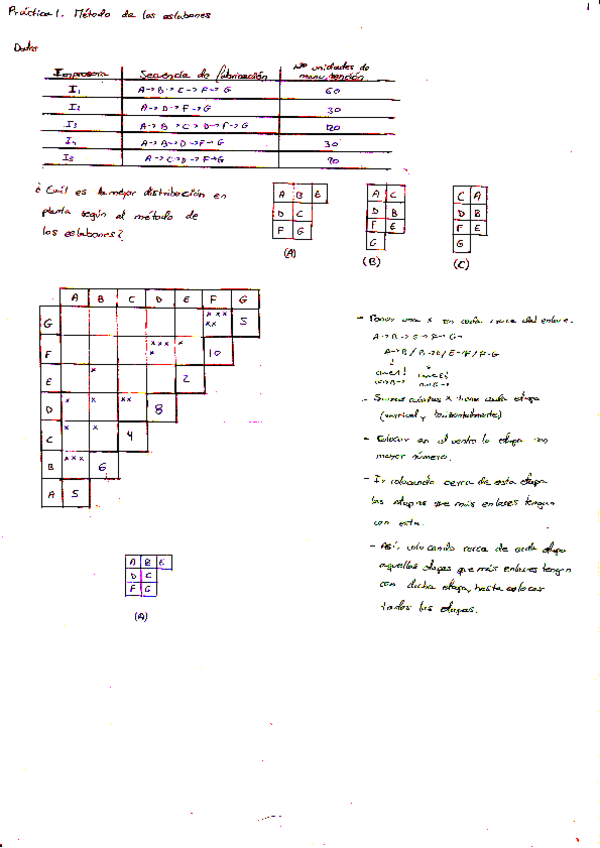 Práctica 1. Método de los eslabones
1
Datos
Impresora Secuencia de fabricación Nº unidades de manutención
I1 A→B→C→F→G 60
I2 A→D→F→G 30
I3 A→B→C→D→F→G 120
I4 A→B→D→F→G 30
I5 A→C→D→F→G 70
¿Cuál es la mejor distribución en
planta según el método de
los eslabones?
A B E
D C
F G
(A)
A C
D B
F E
G
(B)
C A
D B
F E
G
(C)
A B C D E F G
G xxx xx 5
F xxx x x 10
E x 2
D x x xx 8
C x x 4
B xxx 6
A 5
- Poner una x en cada cruce del enlace.
A→B→E→F→G
A→B / B→E / E→F / F→G
- Sumar cuántas x tiene cada etapa
(vertical y horizontalmente)
- Colocar en el centro la etapa con
mayor número.
- Ir colocando cerca de esta etapa
las etapas que más enlaces tengan
con esta.
- Así, colocando cerca de cada etapa
aquellas etapas que más enlaces tengan
con dicha etapa, hasta colocar
todas las etapas.
A B E
D C
F G
(A)